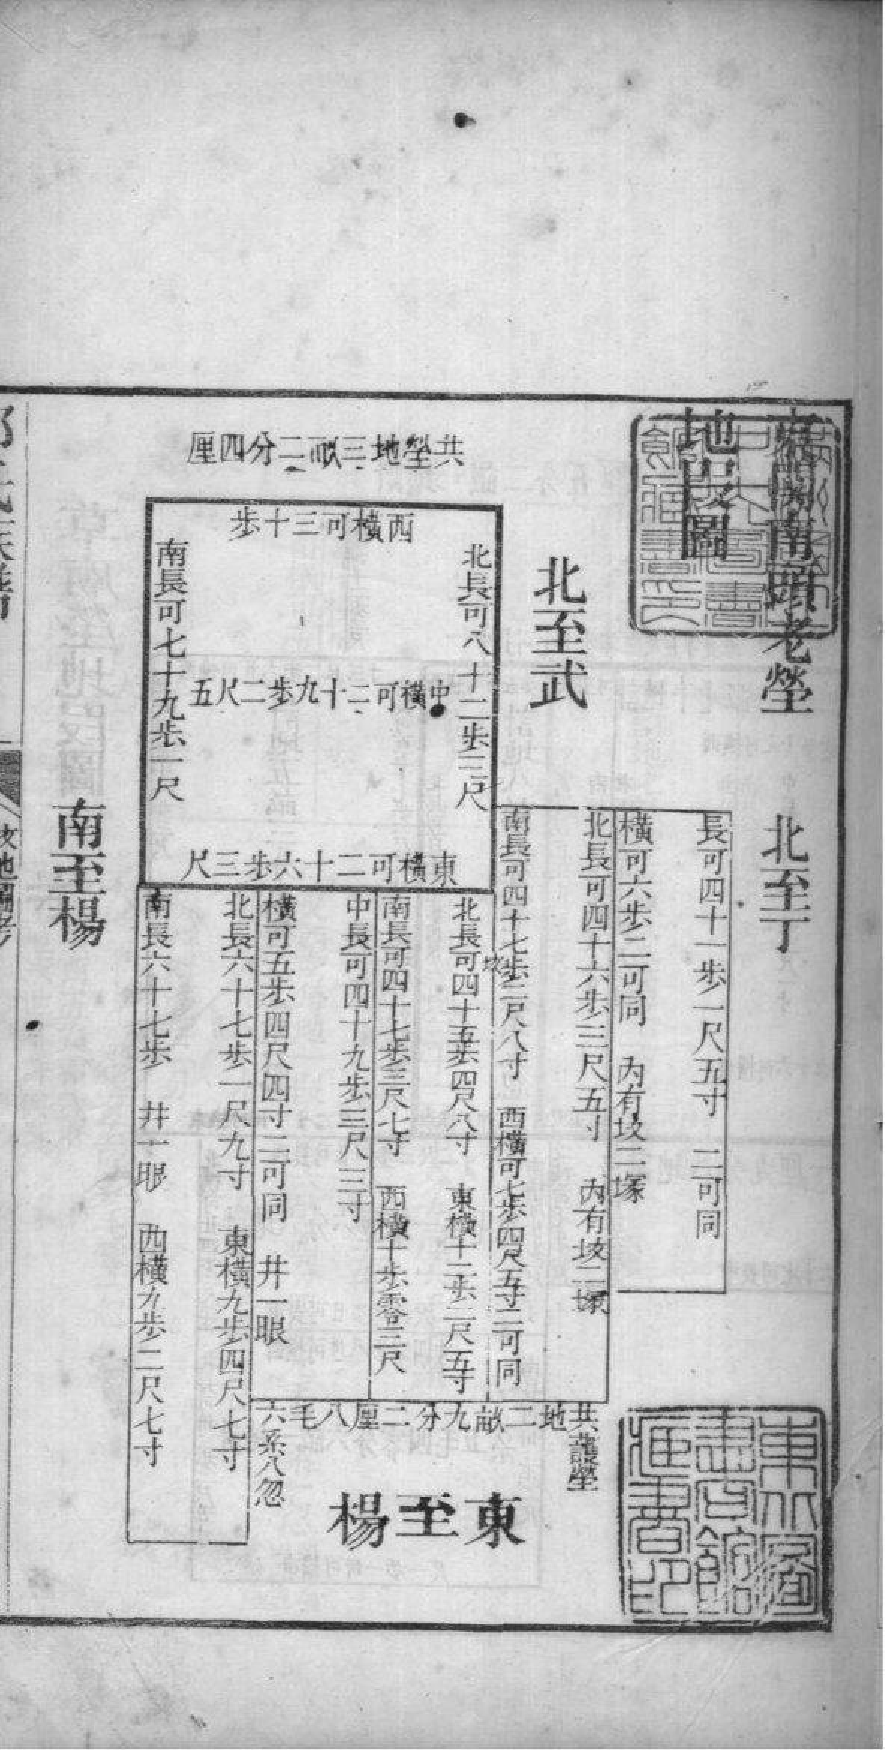 嘉開南頭老塋
地段圖
北至丁
北至武
長可四十一歩一尺五寸　二可同
橫可六歩二可同　內有坟二塚
北長可四十六歩三尺五寸　內有坟二塚
南長可四十七歩二尺八寸　西橫可七歩四尺五寸二可同
共塋地三畝二分四厘
西橫可三十歩
北長可八十二歩三尺
中橫可二十九歩二尺五
南長可七十九歩一尺
東橫可二十六歩三尺
北長可四十五歩四尺八寸　東橫十二歩二尺五寸
南長可四十七歩三尺七寸　西橫十歩零三尺
中長可四十九歩三尺三寸
橫可五歩四尺四寸二可同　井一眼
北長六十七歩一尺九寸　東橫九歩四尺七寸
南長六十七歩　井一眼　西橫九歩二尺七寸
共護塋
地二畝九分二厘八毛
六系八忽
東至楊
南至楊